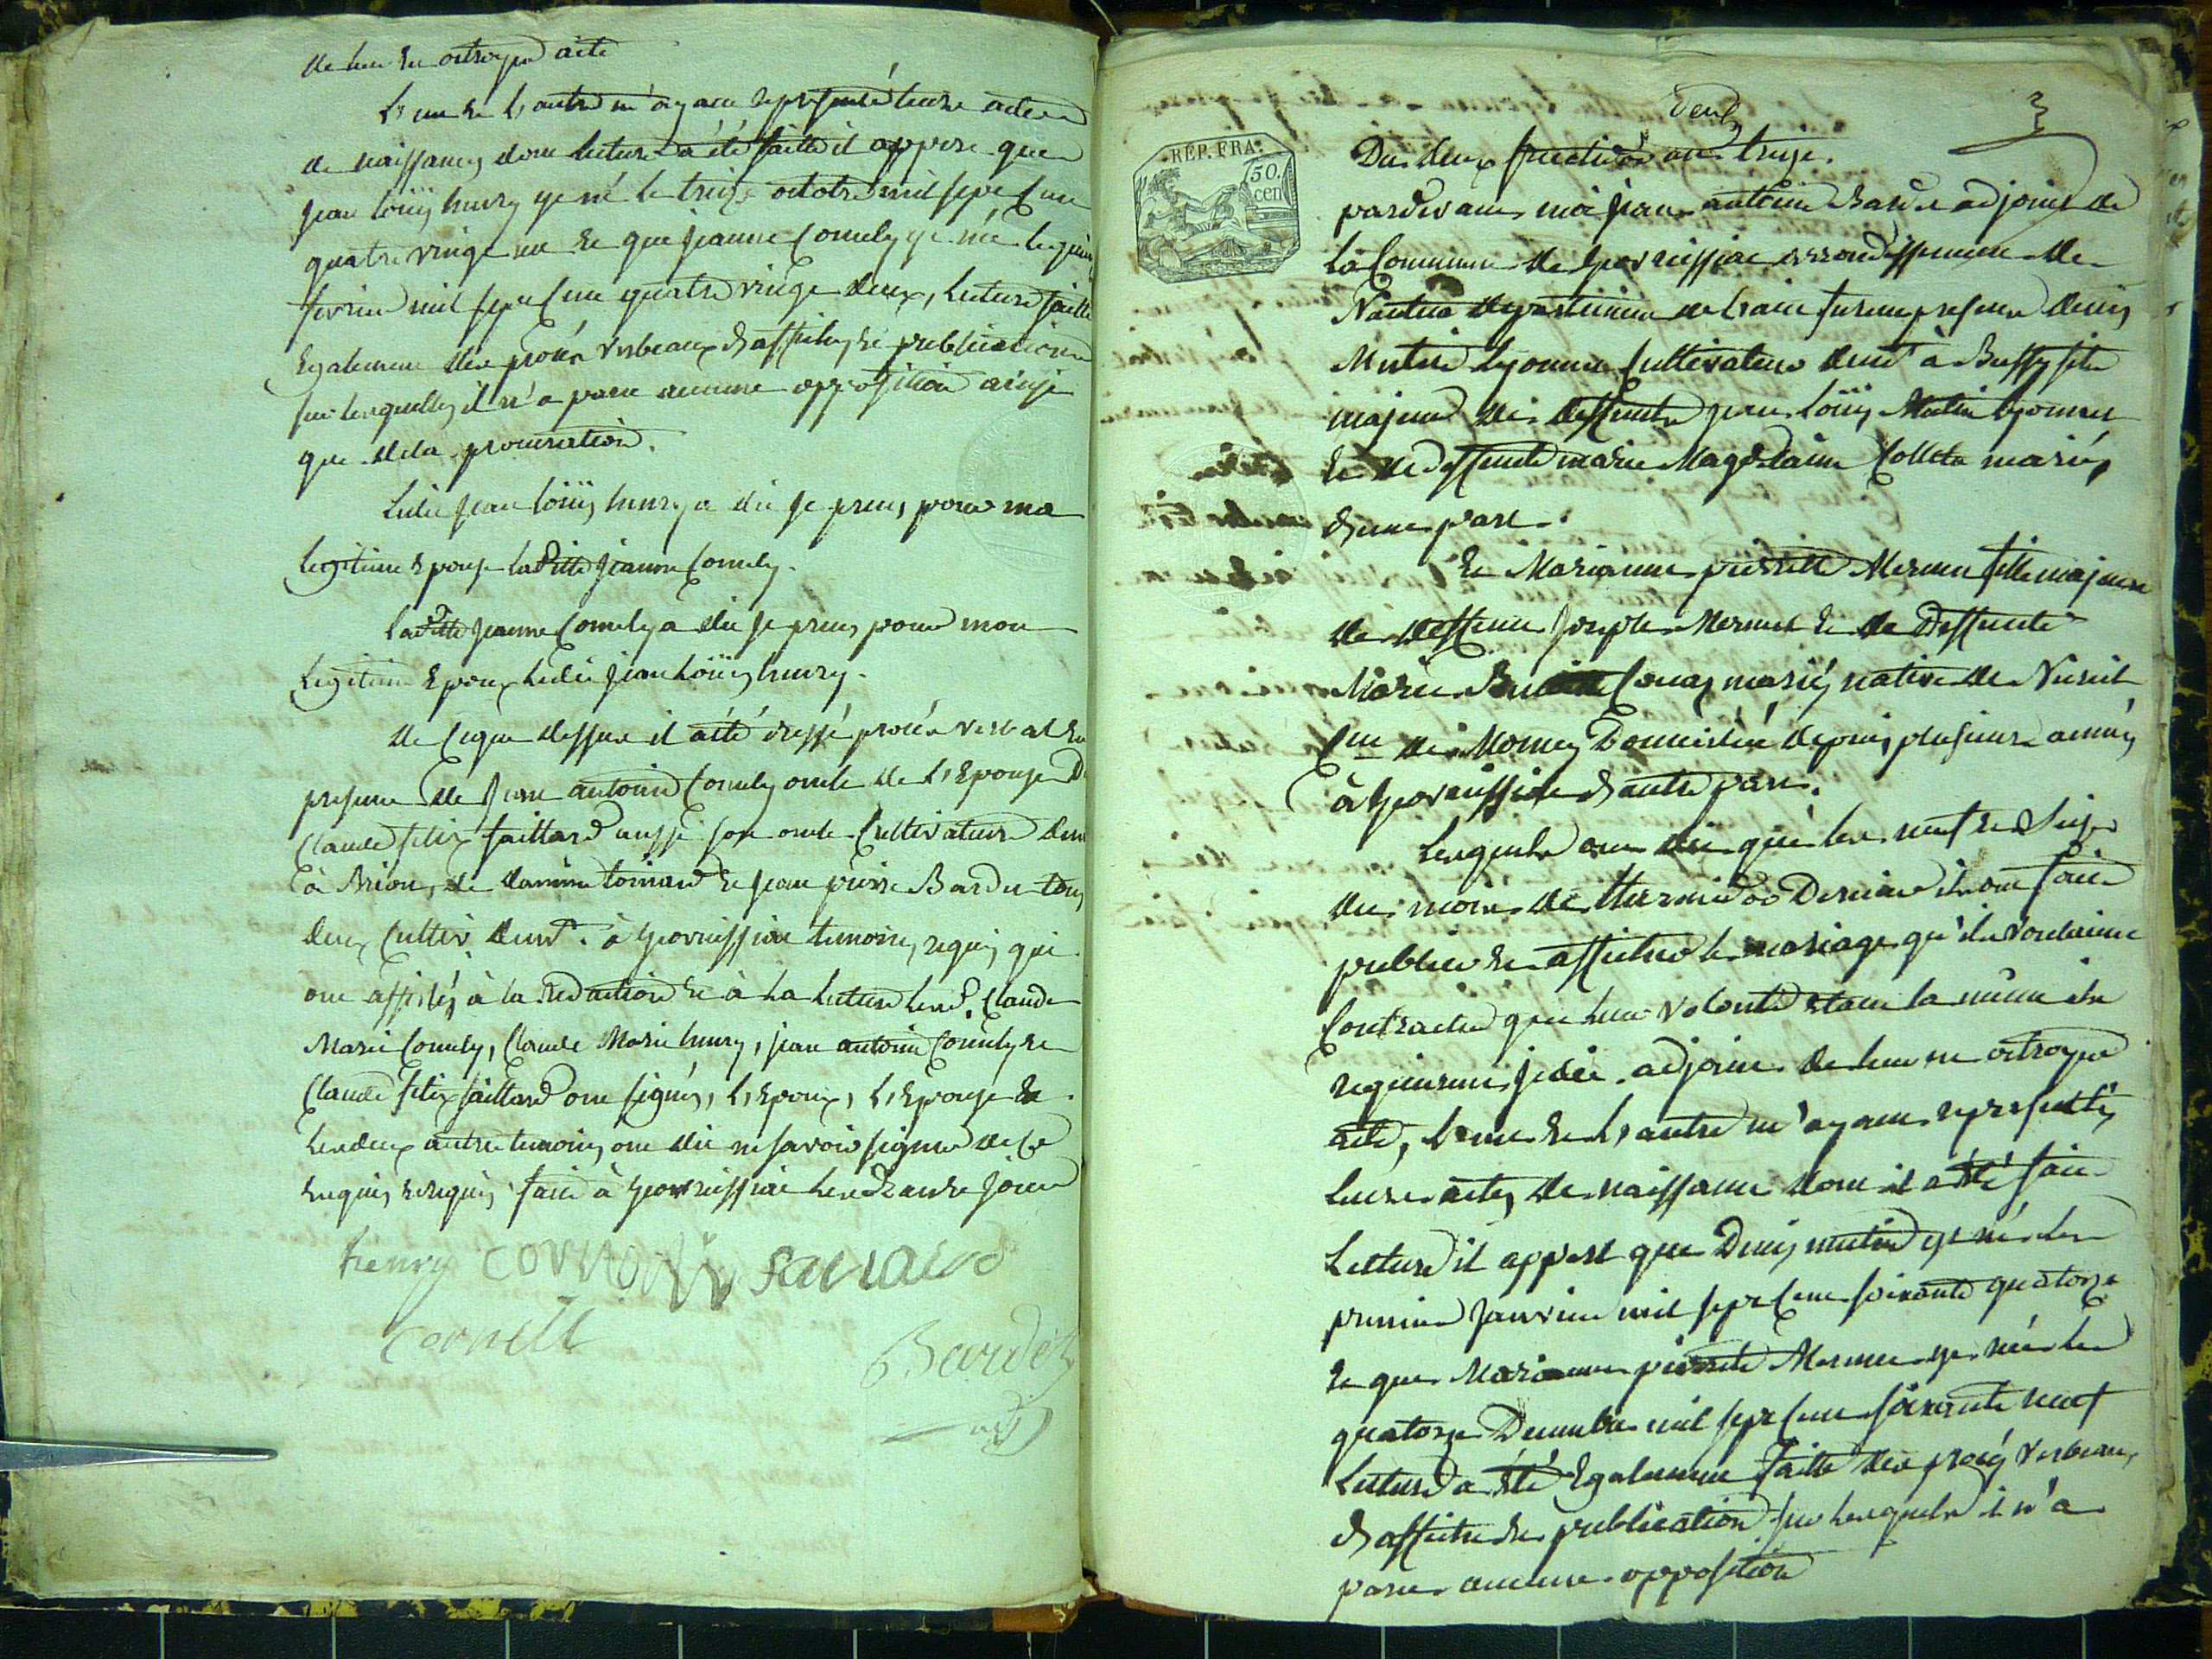 de leur en octroyer acte
L'un et l'autre m'ayant representé leurs actes
de naissances dont lecture a été faitte il appert que
jean Loüis henry est né le treize octobre mil sept cent
quatre vingt un et que jeanne Cornely est née le quinze
fevrier mil sept cent quatre vingt deux, lecture faitte
Egalement des procès verbeaux d'affiches et publications
sur lesquelles il n'a paru aucune opposition ainsi
que de la procuration.
Ledit jean loüis henry a dit je prens pour ma
legitime Epouse laditte jeanne Cornely.
laditte jeanne Cornely a dit je prens pour mon
Legitime Epoux ledit jean Loüis henry.
de ce que dessus il a été dressé procès verbal en
presence de jean antoine Cornely oncle de l'Epouse de
Claude felix faillard aussi son oncle Cultivateurs dem
à Brion, de tornard et jean pierre Bardet tous
deux Cultiv. demt. à Geovreissiat temoins requis qui
ont assistés à la redaction et à la lecture lesd. Claude
Marie Cornely, Claude Marie henry, jean antoine Cornely et
Claude felix faillard ont signés, l'Epoux, l'Epouse et
les deux autres temoins ont dit ne savoir signer de ce
enquis et requis fait à Geovreissiat lesd an et jour
henry Cornely
Bardet
adj
3
Du deux fructidor an treize.
pardevant moi jean antoine Bardet adjoint de
la Commune de Geovreissiat arrondissement de
Nantua departement de l'ain furent presens denis
Mutin Lyonnet Cultivateur demt à Bussy fils
majeur de deffunt jean loüis Mutin Lyonnet
et de deffunte marie Magdelaine Collet mariés
d'une part.
Et Marianne pierrette Mermet fille majeure
de deffunt joseph Mermet et de deffunte
Marie mariés native de
Cne de Mornay Domiciliée depuis plusieurs années
à Geovreissiat d'autre part.
Lesquels ont dit que les neuf et seize
du mois de thermidor Dernier ils ont fait
publier et afficher le mariage qu'ils vouloient
Contracter que leur volonté etant la même ils
requierent jedit adjoint de leur en octroyer
acte, l'une et l'autre m'ayant representés
leurs actes de naissance dont il a été fait
Lecture il appert que Denis mutin est né les
premier janvier mil sept cent soixante quatorze
et que Marianne pierrette Mermet est née les
quatorze Decembre mil sept cent soixante neuf
Lecture a été Egalement faitte des procés verbeaux
d'affiche de publication sur lesquels il n'a
paru aucune opposition
REP. FRA.
50.
cen